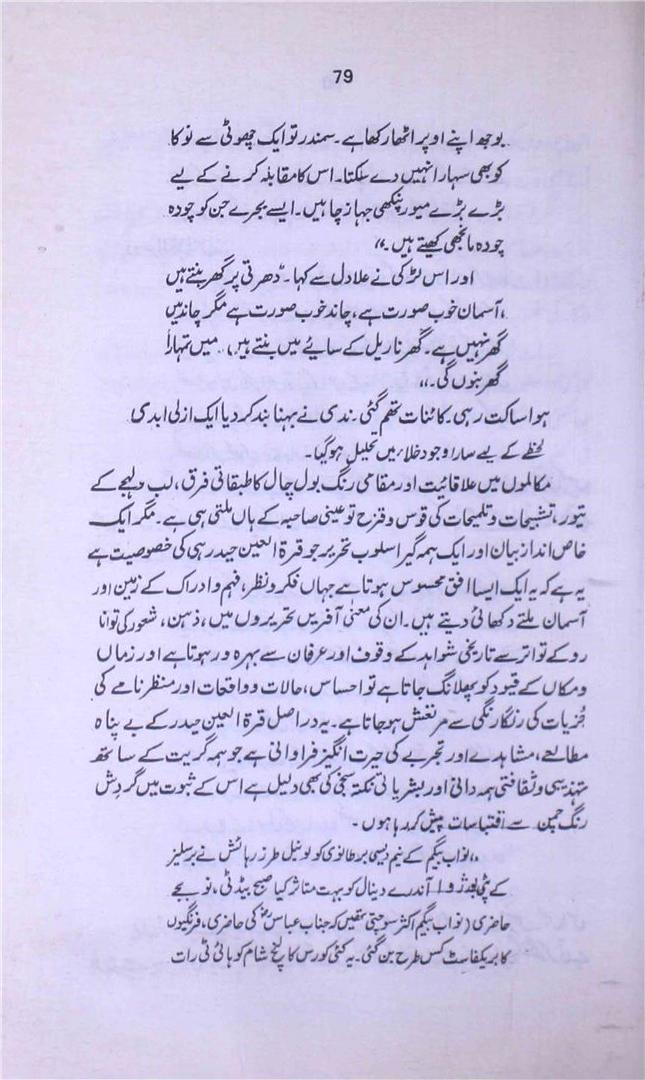 79
بوجھ اپنے اوپر اٹھا رکھا ہے۔ سمندر تو ایک چھوٹی سے نوکا
کو بھی سہارا نہیں دے سکتا۔ اس کا مقابلہ کرنے کے لیے
بڑے بڑے میور پنکھی جہاز چاہیں۔ ایسے بجرے جن کو چودہ
چودہ مانجھی کھیتے ہیں۔“
اور اس لڑکی نے علادل سے کہا۔ ”دھرتی پر گھر بنتے ہیں
،آسمان خوب صورت ہے، چاند خوب صورت ہے مگر چاند میں
گھر نہیں ہے۔ گھر ناریل کے سائے میں بنتے ہیں، میں تمہارا
گھر بنوں گی۔“
ہوا ساکت رہی۔ کائنات تھم گئی۔ ندی نے بہنا بند کر دیا ایک ازلی ابدی
لحظے کے لیے سارا وجود خلاء میں تحلیل ہو گیا۔
مکالموں میں علاقائیت اور مقامی رنگ بول چال کا طبقاتی فرق، لب و لہجے کے
تیور، تشبیہات و تلمیحات کی قوس و قزح تو عینی صاحبہ کے ہاں ملتی ہی ہے۔ مگر ایک
خاص انداز بیان اور ایک ہمہ گیر اسلوب تحریر جو قرۃ العین حیدر ہی کی خصوصیت ہے
یہ ہے کہ یہ ایک ایسا افق محسوس ہوتا ہے جہاں فکر و نظر، فہم و ادراک کے زمین اور
آسمان ملتے دکھائی دیتے ہیں۔ ان کی معنی آفریں تحریروں میں، ذہن، شعور کی توانا
رو کے تواتر سے تاریخی شواہد کے وقوف اور عرفان سے بہرہ ور ہوتا ہے اور زماں
و مکاں کے قیود کو پھلانگ جاتا ہے تو احساس، حالات و واقعات اور منظر نامے کی
جُزیات کی رنگا رنگی سے مرتعش ہو جاتا ہے۔ یہ در اصل قرۃ العین حیدر کے بے پناہ
مطالعے، مشاہدے اور تجربے کی حیرت انگیز فراوانی ہے جو ہمہ گریت کے ساتھ
تہذیبی و ثقافتی ہمہ دانی اور بشریاتی نکتہ سنجی کی بھی دلیل ہے اس کے ثبوت میں گردش
رنگ چمن سے اقتباسات پیش کر رہا ہوں۔
”نواب بیگم کے نیم دیسی برطانوی کولونیل طرز رہائش نے برسلیز
کے آندرے دینال کو بہت متاثر کیا صبح بیڈ ٹی، نو بجے
حاضری (نواب بیگم اکثر سوچتی تھیں کہ جناب عباسؑ کی حاضری، فرنگیوں
کا بریکفاسٹ کس طرح بن گئی۔ یہ کئی کورس کا لنچ شام کو ہائی ٹی رات